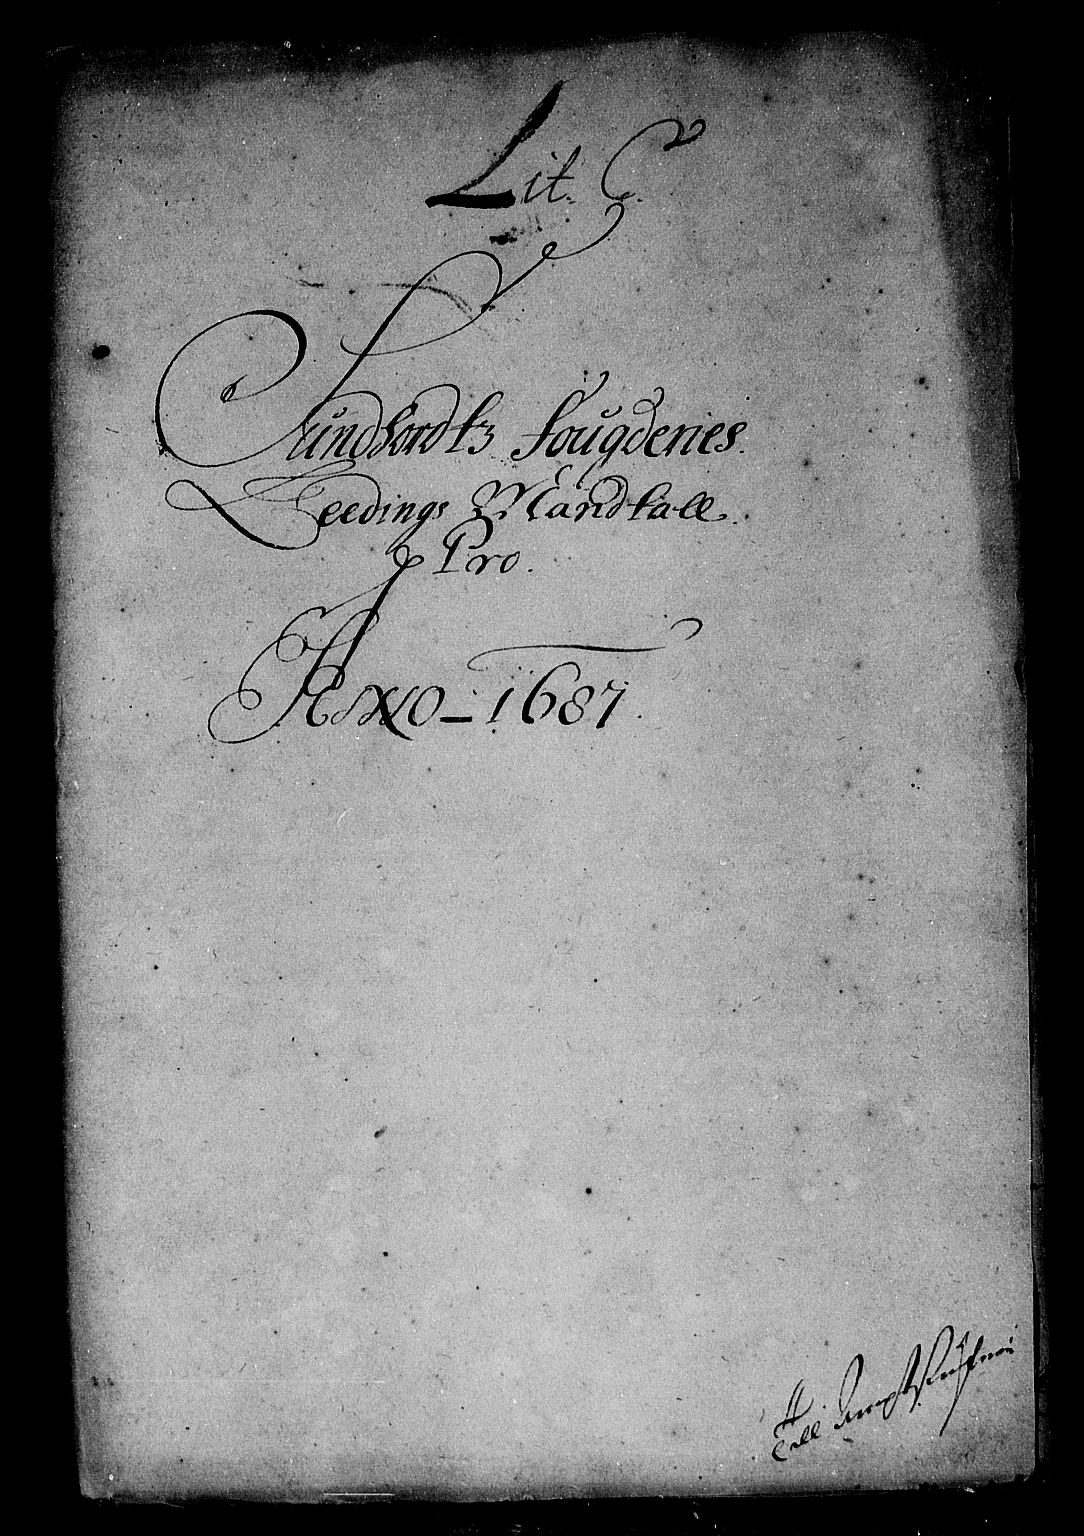 Lit. C.
Sundfordtz fougderies.
Leedings Mandtall.
Pro.
ANNO - 1687.